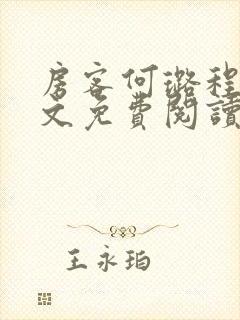 房客何璐程
文免費閱讀
王永珀